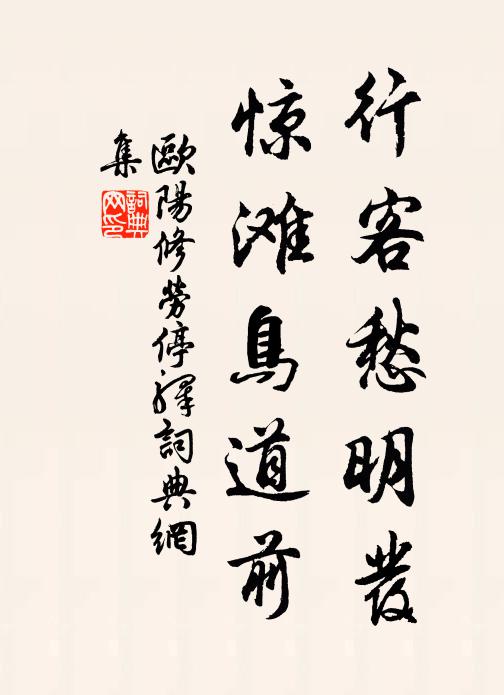 行客愁明發
惊滩鳥道前
歐陽修勞停驛詞典網
集
詞典
网印